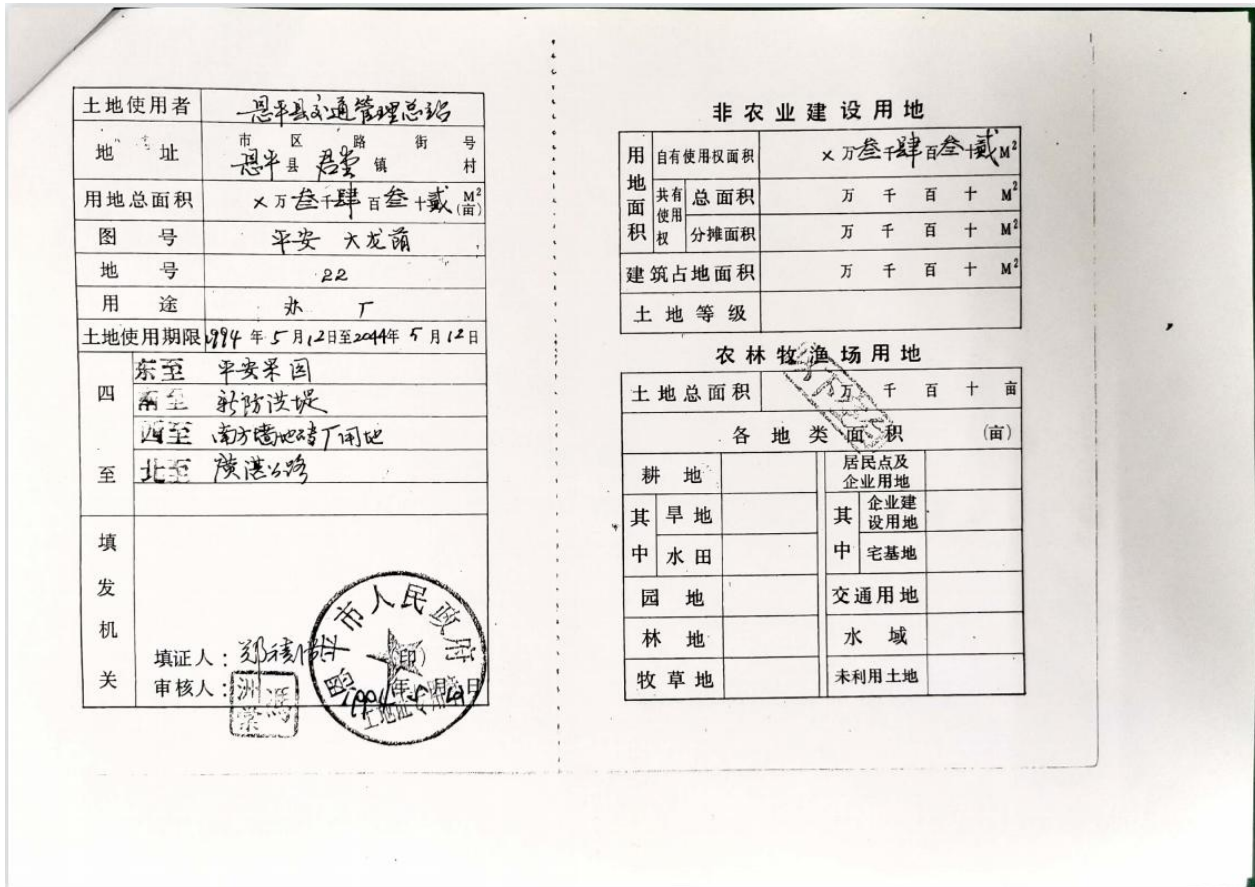 土地使用者 恩平县交通管理总站
地址 市 区 路 街 号
恩平县 君堂镇 村
用地总面积 ×万叁千肆百叁十贰 M²(亩)
图号 平安 大龙
地号 22
用途 办厂
土地使用期限 1994年5月12日至2044年5月12日
四至
东至 平安果园
南至 新防洪堤
西至 南方墙地砖厂用地
北至 广湛公路
填发机关
恩平市人民政府
填证人:郑
(印)
审核人:冯洲荣
1994年5月 日
土地证专用章
非农业建设用地
用地面积
自有使用权面积 ×万叁千肆百叁十贰M²
共有使用权
总面积 万 千 百 十 M²
分摊面积 万 千 百 十 M²
建筑占地面积 万 千 百 十 M²
土地等级
农林牧渔场用地
土地总面积 万 千 百 十 亩
各地类面积 (亩)
耕地 居民点及企业用地
其中 旱地 其中 企业建设用地
水田 宅基地
园地 交通用地
林地 水域
牧草地 未利用土地